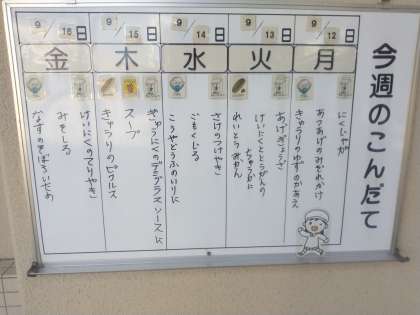 今週のこんだて
9/12日
月
にくじゃが
あつあげのみぞれかけ
きゅうりのゆずのかあえ
9/13日
火
あげぎょうざ
けいにくととうがんの
ちゅうかに
れいとうみかん
9/14日
水
さけのつけやき
ごもくじる
こうやどうふのいりに
9/15日
木
ぎゅうにくのデミグラスソースに
スープ
きゅうりのピクルス
9/16日
金
けいにくのてりやき
みそしる
なすのそぼろいため